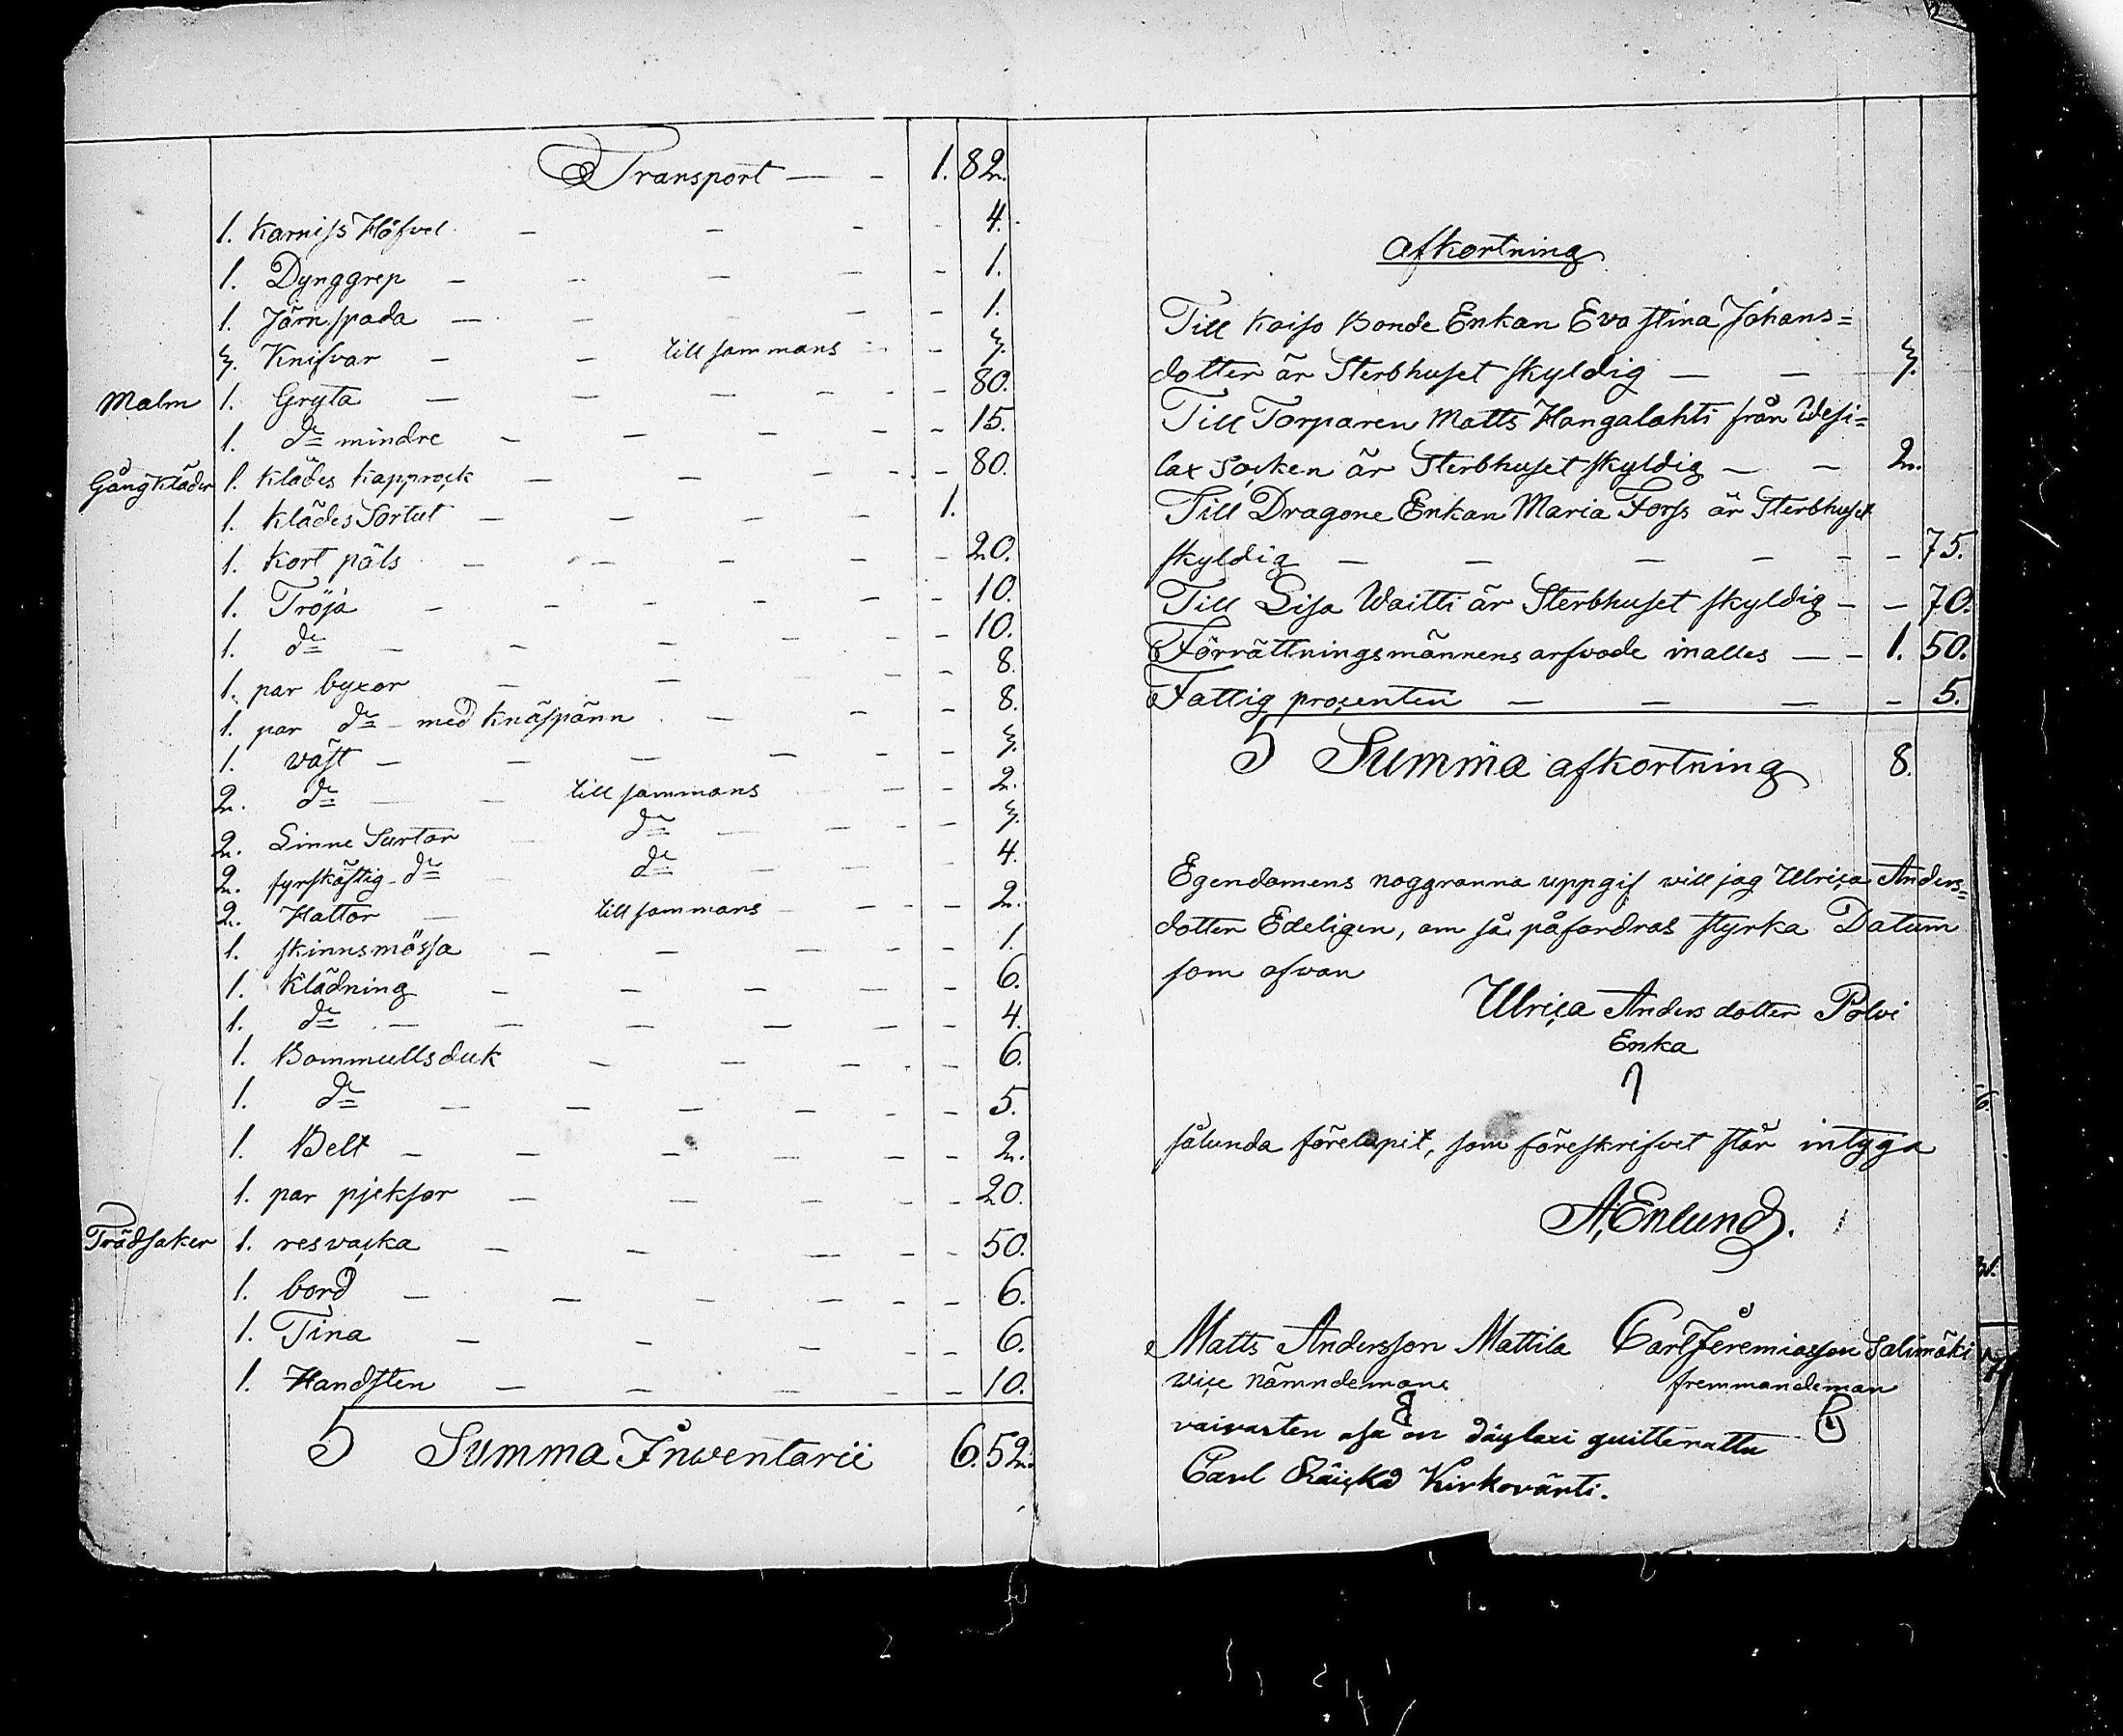 Transport — - 1. 82.
1. Karniss Höfvel - - - - 4.
1. Dynggrep - - - - - 1.
1. Järn spada - - - - - 1.
3. Knifvar - - till sammans - - 3.
Malm 1. Gryta - - - - - - 80.
1. do mindre - - - - - 15.
Gångkläder 1. Klädes Kapprock - - - - - 80.
1. Klädes Sortut - - - - 1.
1. Kort päls - - - - - 20.
1. Tröja - - - - - - 10.
1. do - - - - - - 10.
1. par byxor - - - - - 8.
1. par do - med Knäspänn - - - 8.
1. väst - - - - - - 3.
2. do - - till sammans - - 2.
2. Linne Surtor do - - - 3.
2. fyrskäftig - do do - - - 4.
2. Hattor - till sammans - - - 2.
1. skinnsmössa - - - - - 1.
1. Klädning - - - - - 6.
1. do - - - - - - 4.
1. Bommullsduk - - - - - 6.
1. do - - - - - - 5.
1. Belt - - - - - - 2.
1. par pjeksor - - - - - 20.
Trädsaker 1. resvaska - - - - - 50.
1. bord - - - - - - 6.
1. Tina - - - - - 6.
1. Handsten - - - - - - 10.
S Summa Inwentarii 6. 52.
afkortning
Till Kaiso Bonde Enkan Eva Stina Johans=
dotter är Sterbhuset skyldig - - - 3.
Till Torparen Matts Hangalahti från Wesi=
lax Socken är Sterbhuset skyldig - - 2.
Till Dragone Enkan Maria Forss är Sterbhuset
skyldig - - - - - - 75.
Till Lisa Waitti är Sterbhuset skyldig - - 70.
Förrättningsmännens arfvode inalles - - 1. 50.
Fattig procenten - - - - 5.
S Summa afkortning 8.
Egendomens noggranna uppgif will jag Ulrica Anders=
dotter Edeligen, om så påfordras styrka Datum
som ofvan
Ulrica Anders dotter Polvi
Enka
sålunda förelupit, som föreskrifvet står intyga
A. Enlund.
Matts Andersson Mattila Carl Jeremiasson Salimäki
vice Nämndemans fremmandeman
vaivasten osa on täylaxi quitterattu
Carl Räickä Kirkovärti.